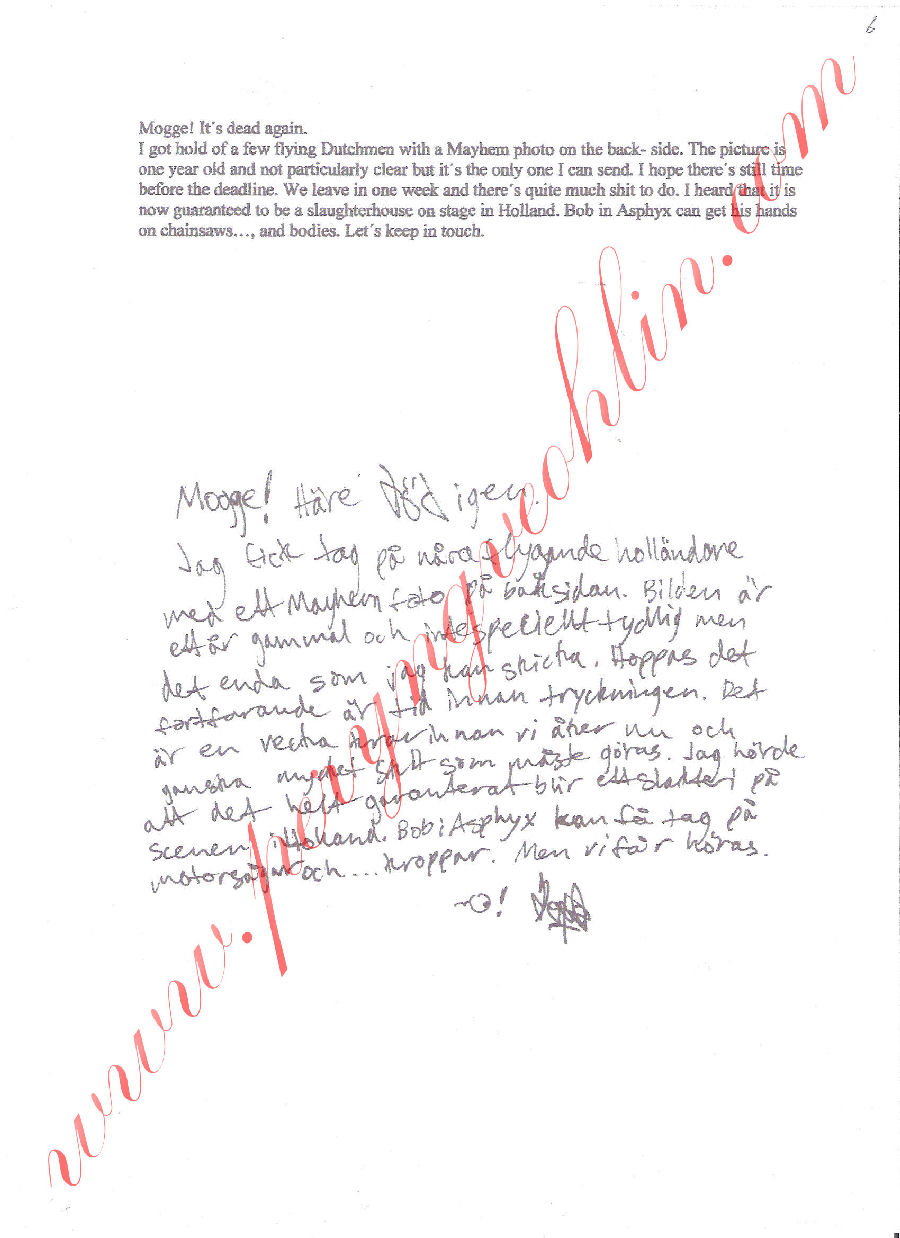 6
Mogge! It´s dead again.
I got hold of a few flying Dutchmen with a Mayhem photo on the back- side. The picture is
one year old and not particularly clear but it´s the only one I can send. I hope there´s still time
before the deadline. We leave in one week and there´s quite much shit to do. I heard that it is
now guaranteed to be a slaughterhouse on stage in Holland. Bob in Asphyx can get his hands
on chainsaws…, and bodies. Let´s keep in touch.
Mogge! Häre Död igen.
Jag fick tag på nåra flygande holländare
med ett Mayhem foto på baksidan. Bilden är
ett år gammal och inte speciellt tydlig men
det enda som jag kan skicka. Hoppas det
fortfarande är tid innan tryckningen. Det
är en vecka kvar innan vi åker nu och
ganska mycket skit som måste göras. Jag hörde
att det helt garanterat blir ett slakteri på
scenen i Holland. Bob i Asphyx kan få tag på
motorsågar och ... kroppar. Men vi får höras.
www.pelleyngveohlin.com